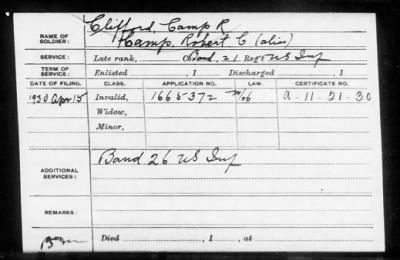 NAME OF SOLDIER: Clifford, Camp R
Camp, Robert C (alias)
SERVICE: Late rank, Band, 21 Reg't US Inf
TERM OF SERVICE: Enlisted , 1 Discharged , 1
DATE OF FILING. CLASS. APPLICATION NO. LAW. CERTIFICATE NO.
1930 Apr 15 Invalid, 1665-372 A-11-21-30
Widow,
Minor,
ADDITIONAL SERVICES: Band 26 US Inf
REMARKS:
Died , 1 , at